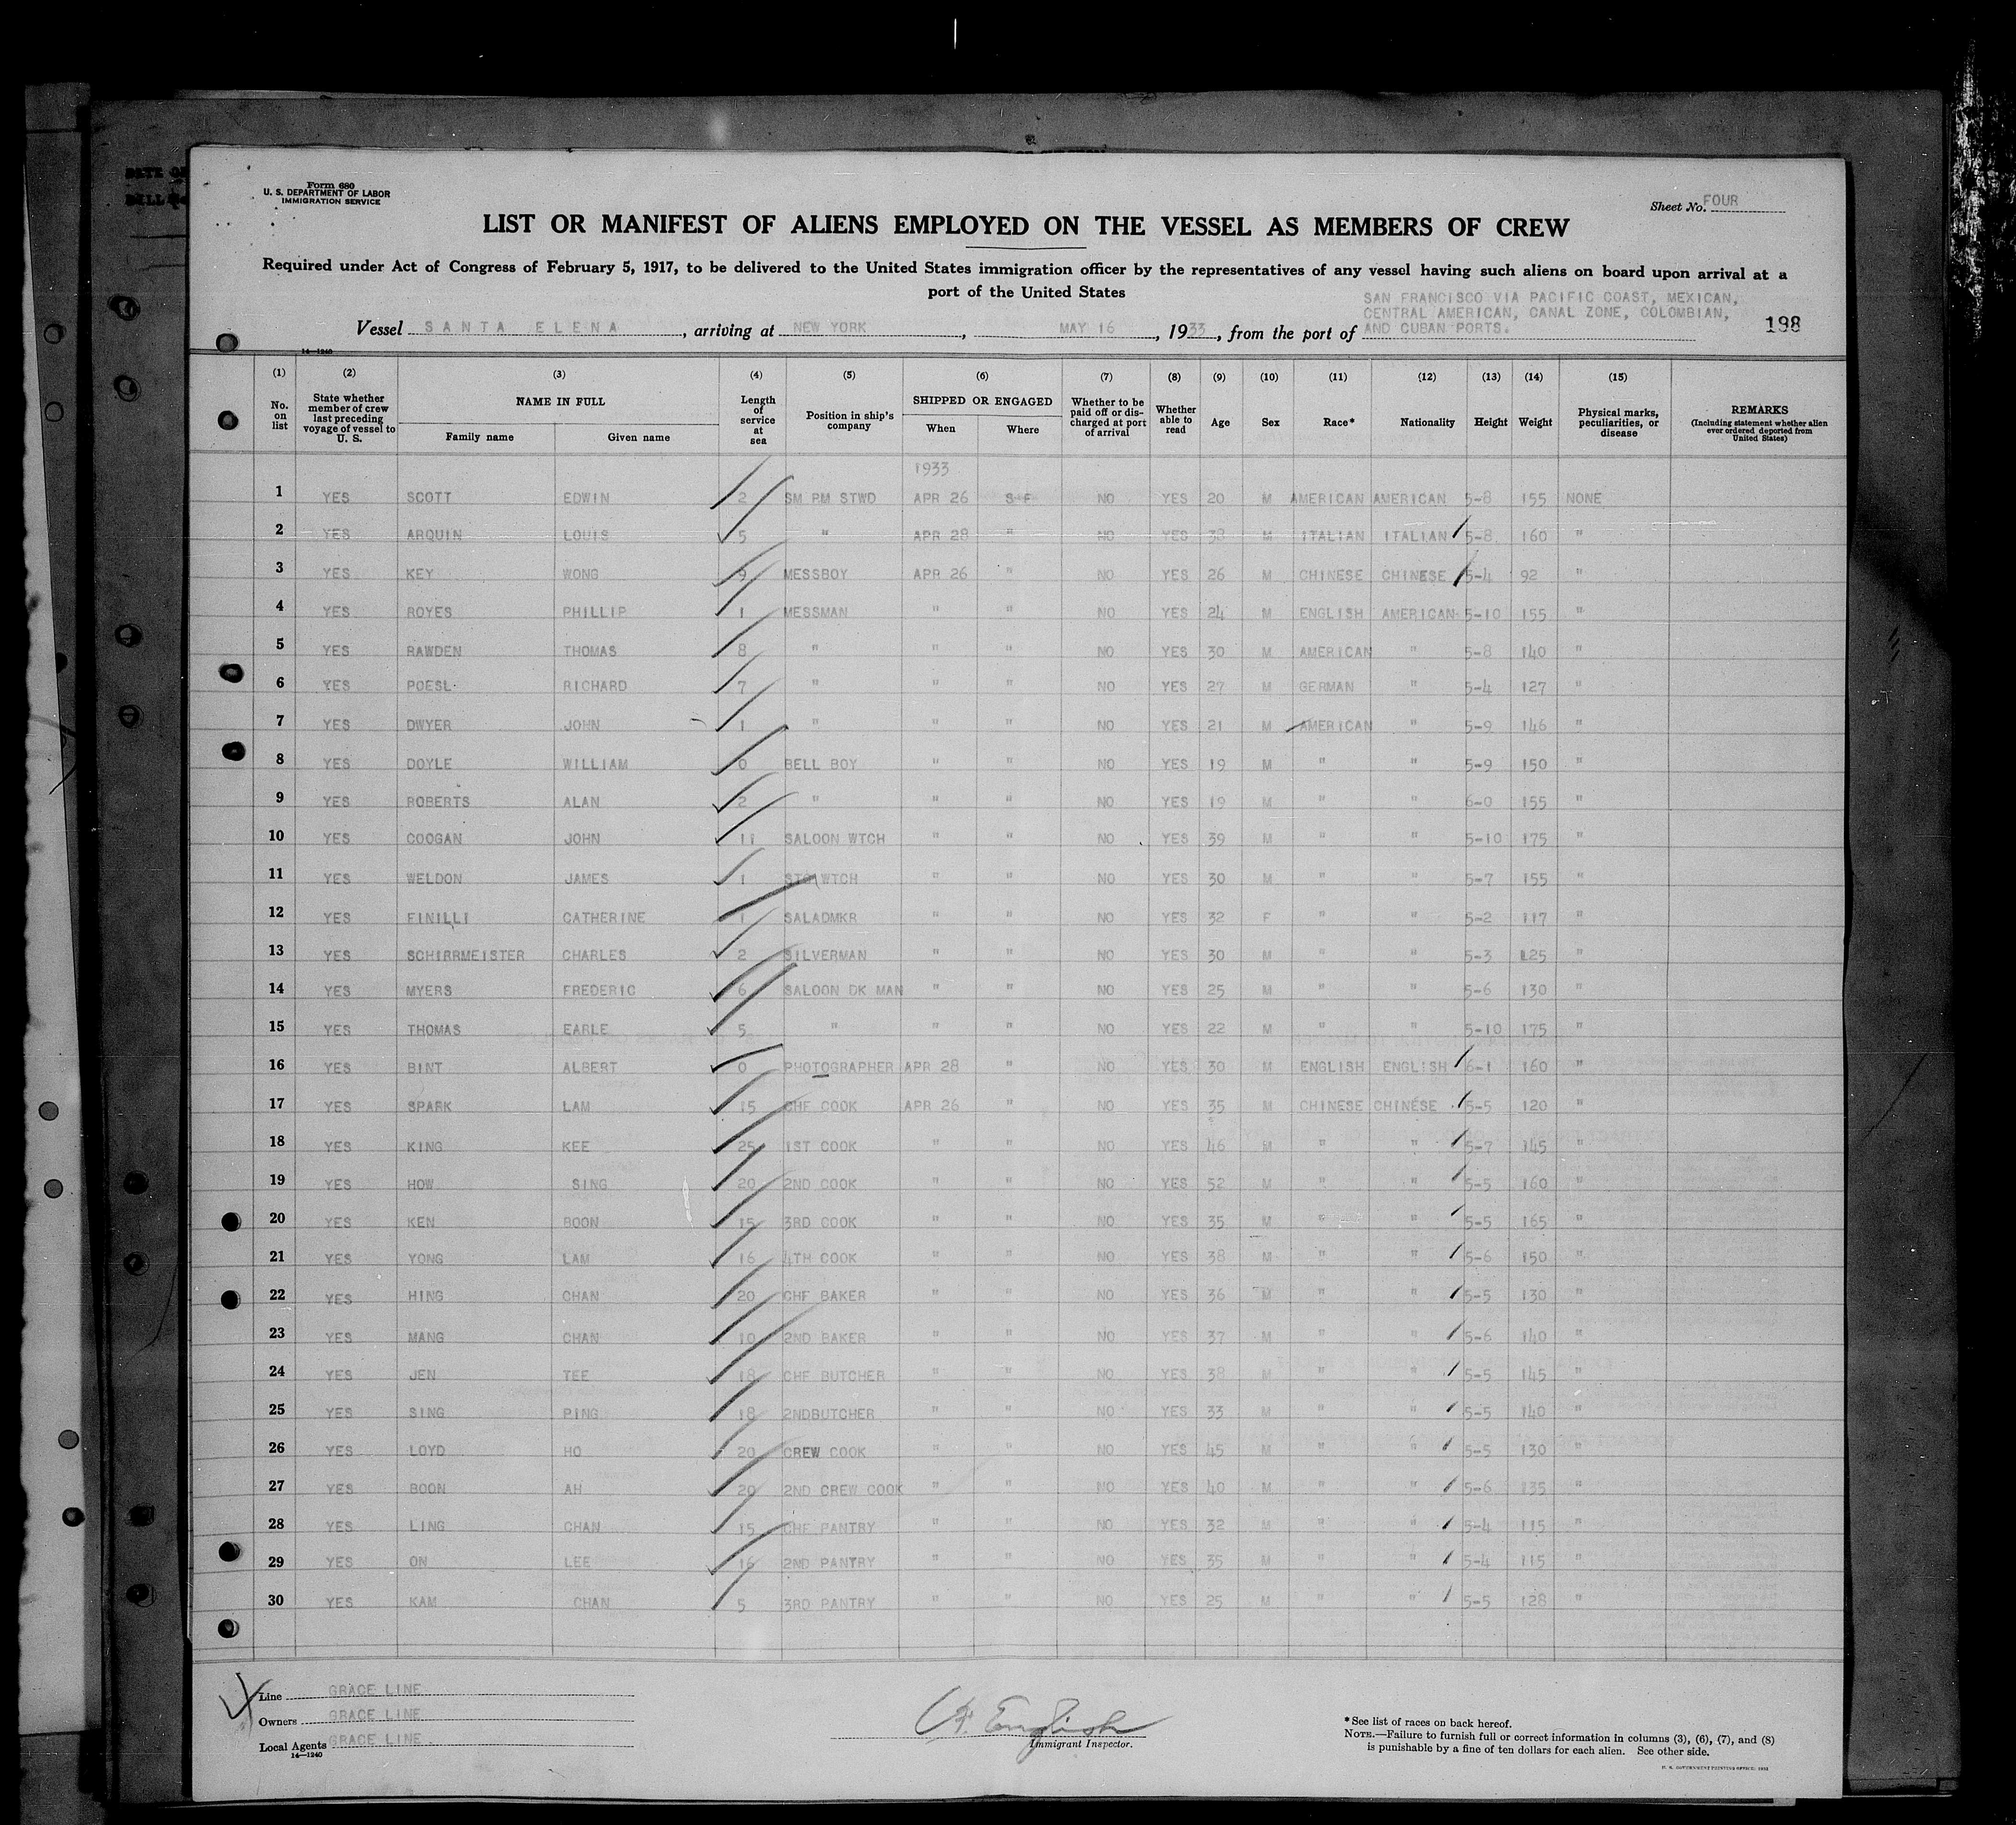 Form 680
U. S. DEPARTMENT OF LABOR
IMMIGRATION SERVICE
Sheet No. FOUR
LIST OR MANIFEST OF ALIENS EMPLOYED ON THE VESSEL AS MEMBERS OF CREW
Required under Act of Congress of February 5, 1917, to be delivered to the United States immigration officer by the representatives of any vessel having such aliens on board upon arrival at a
port of the United States
SAN FRANCISCO VIA PACIFIC COAST, MEXICAN,
CENTRAL AMERICAN, CANAL ZONE, COLOMBIAN,
Vessel SANTA ELENA, arriving at NEW YORK, MAY 16, 1933, from the port of AND CUBAN PORTS.
198
14—1240
(1) (2) (3) (4) (5) (6) (7) (8) (9) (10) (11) (12) (13) (14) (15)
No. on list
State whether member of crew last preceding voyage of vessel to U. S.
NAME IN FULL
Family name Given name
Length of service at sea
Position in ship's company
SHIPPED OR ENGAGED
When Where
Whether to be paid off or discharged at port of arrival
Whether able to read
Age
Sex
Race*
Nationality
Height
Weight
Physical marks, peculiarities, or disease
REMARKS
(Including statement whether alien ever ordered deported from United States)
1933
1 YES SCOTT EDWIN 2 SM RM STWD APR 26 S F NO YES 20 M AMERICAN AMERICAN 5-8 155 NONE
2 YES ARQUIN LOUIS 5 " APR 28 " NO YES 38 M ITALIAN ITALIAN 5-8 160 "
3 YES KEY WONG 9 MESSBOY APR 26 " NO YES 26 M CHINESE CHINESE 5-4 92 "
4 YES ROYES PHILLIP 1 MESSMAN " " NO YES 24 M ENGLISH AMERICAN 5-10 155 "
5 YES RAWDEN THOMAS 8 " " " NO YES 30 M AMERICAN " 5-8 140 "
6 YES POESL RICHARD 7 " " " NO YES 27 M GERMAN " 5-4 127 "
7 YES DWYER JOHN 1 " " " NO YES 21 M AMERICAN " 5-9 146 "
8 YES DOYLE WILLIAM 0 BELL BOY " " NO YES 19 M " " 5-9 150 "
9 YES ROBERTS ALAN 2 " " " NO YES 19 M " " 6-0 155 "
10 YES COOGAN JOHN 11 SALOON WTCH " " NO YES 39 M " " 5-10 175 "
11 YES WELDON JAMES 1 STG WTCH " " NO YES 30 M " " 5-7 155 "
12 YES FINILLI CATHERINE 1 SALADMKR " " NO YES 32 F " " 5-2 117 "
13 YES SCHIRRMEISTER CHARLES 2 SILVERMAN " " NO YES 30 M " " 5-3 125 "
14 YES MYERS FREDERIC 6 SALOON DK MAN " " NO YES 25 M " " 5-6 130 "
15 YES THOMAS EARLE 5 " " " NO YES 22 M " " 5-10 175 "
16 YES BINT ALBERT 0 PHOTOGRAPHER APR 28 " NO YES 30 M ENGLISH ENGLISH 6-1 160 "
17 YES SPARK LAM 15 CHF COOK APR 26 " NO YES 35 M CHINESE CHINESE 5-5 120 "
18 YES KING KEE 25 1ST COOK " " NO YES 46 M " " 5-7 145 "
19 YES HOW SING 20 2ND COOK " " NO YES 52 M " " 5-5 160 "
20 YES KEN BOON 15 3RD COOK " " NO YES 35 M " " 5-5 165 "
21 YES YONG LAM 16 4TH COOK " " NO YES 38 M " " 5-6 150 "
22 YES HING CHAN 20 CHF BAKER " " NO YES 36 M " " 5-5 130 "
23 YES MANG CHAN 10 2ND BAKER " " NO YES 37 M " " 5-6 140 "
24 YES JEN TEE 18 CHF BUTCHER " " NO YES 38 M " " 5-5 145 "
25 YES SING PING 18 2NDBUTCHER " " NO YES 33 M " " 5-5 140 "
26 YES LOYD HO 20 CREW COOK " " NO YES 45 M " " 5-5 130 "
27 YES BOON AH 20 2ND CREW COOK " " NO YES 40 M " " 5-6 135 "
28 YES LING CHAN 15 CHF PANTRY " " NO YES 32 M " " 5-4 115 "
29 YES ON LEE 16 2ND PANTRY " " NO YES 35 M " " 5-4 115 "
30 YES KAM CHAN 5 3RD PANTRY " " NO YES 25 M " " 5-5 128 "
Line GRACE LINE
Owners GRACE LINE
Local Agents GRACE LINE
14—1240
English
Immigrant Inspector.
*See list of races on back hereof.
NOTE.—Failure to furnish full or correct information in columns (3), (6), (7), and (8)
is punishable by a fine of ten dollars for each alien. See other side.